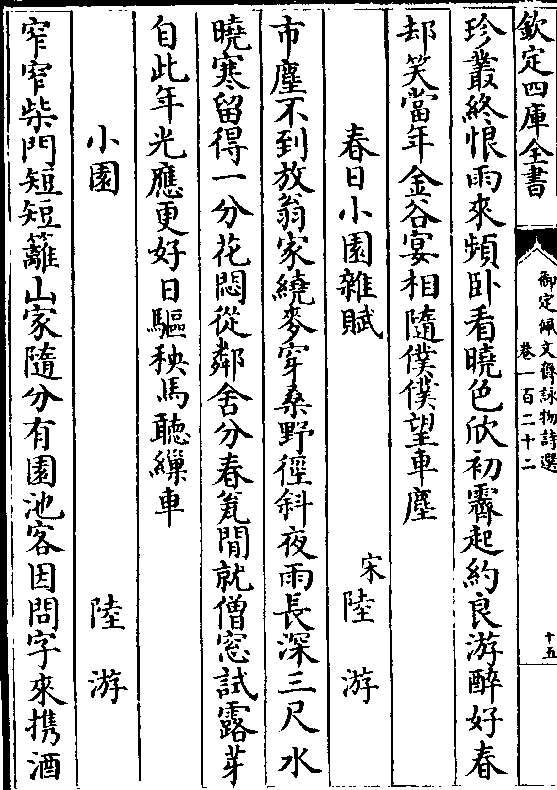 欽定四庫全書
御定佩文齋詠物詩選
卷一百二十二
十五
珍叢終恨雨來頻卧看曉色欣初霽起約良游醉好春
却笑當年金谷宴相隨僕僕望車塵
春日小園雜賦
宋陸游
市塵不到放翁家繞麥穿桑野徑斜夜雨長深三尺水
曉寒留得一分花悶從鄰舍分春瓮閒就僧窓試露芽
自此年光應更好日驅秧馬聽繅車
小園
陸游
窄窄柴門短短籬山家隨分有園池客因問字來携酒